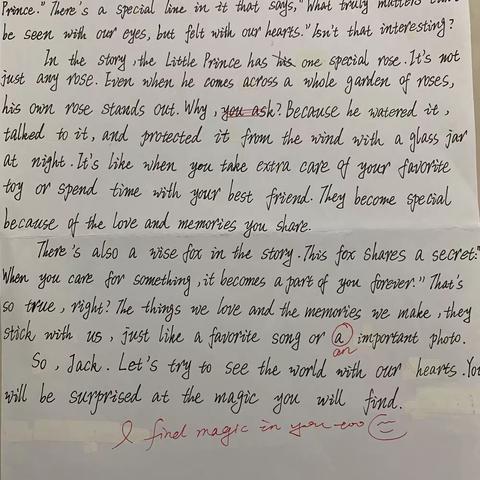 Prince." There's a special line in it that says, "What truly matters can't
be seen with our eyes, but felt with our hearts." Isn't that interesting?
In the story, the Little Prince has his one special rose. It's not
just any rose. Even when he comes across a whole garden of roses,
his own rose stands out. Why, you ask? Because he watered it,
talked to it, and protected it from the wind with a glass jar
at night. It's like when you take extra care of your favorite
toy or spend time with your best friend. They become special
because of the love and memories you share.
There's also a wise fox in the story. This fox shares a secret: "
When you care for something, it becomes a part of you forever." That's
so true, right? The things we love and the memories we make, they
stick with us, just like a favorite song or a important photo.
an
So, Jack. Let's try to see the world with our hearts. You
will be surprised at the magic you will find.
I find magic in you too